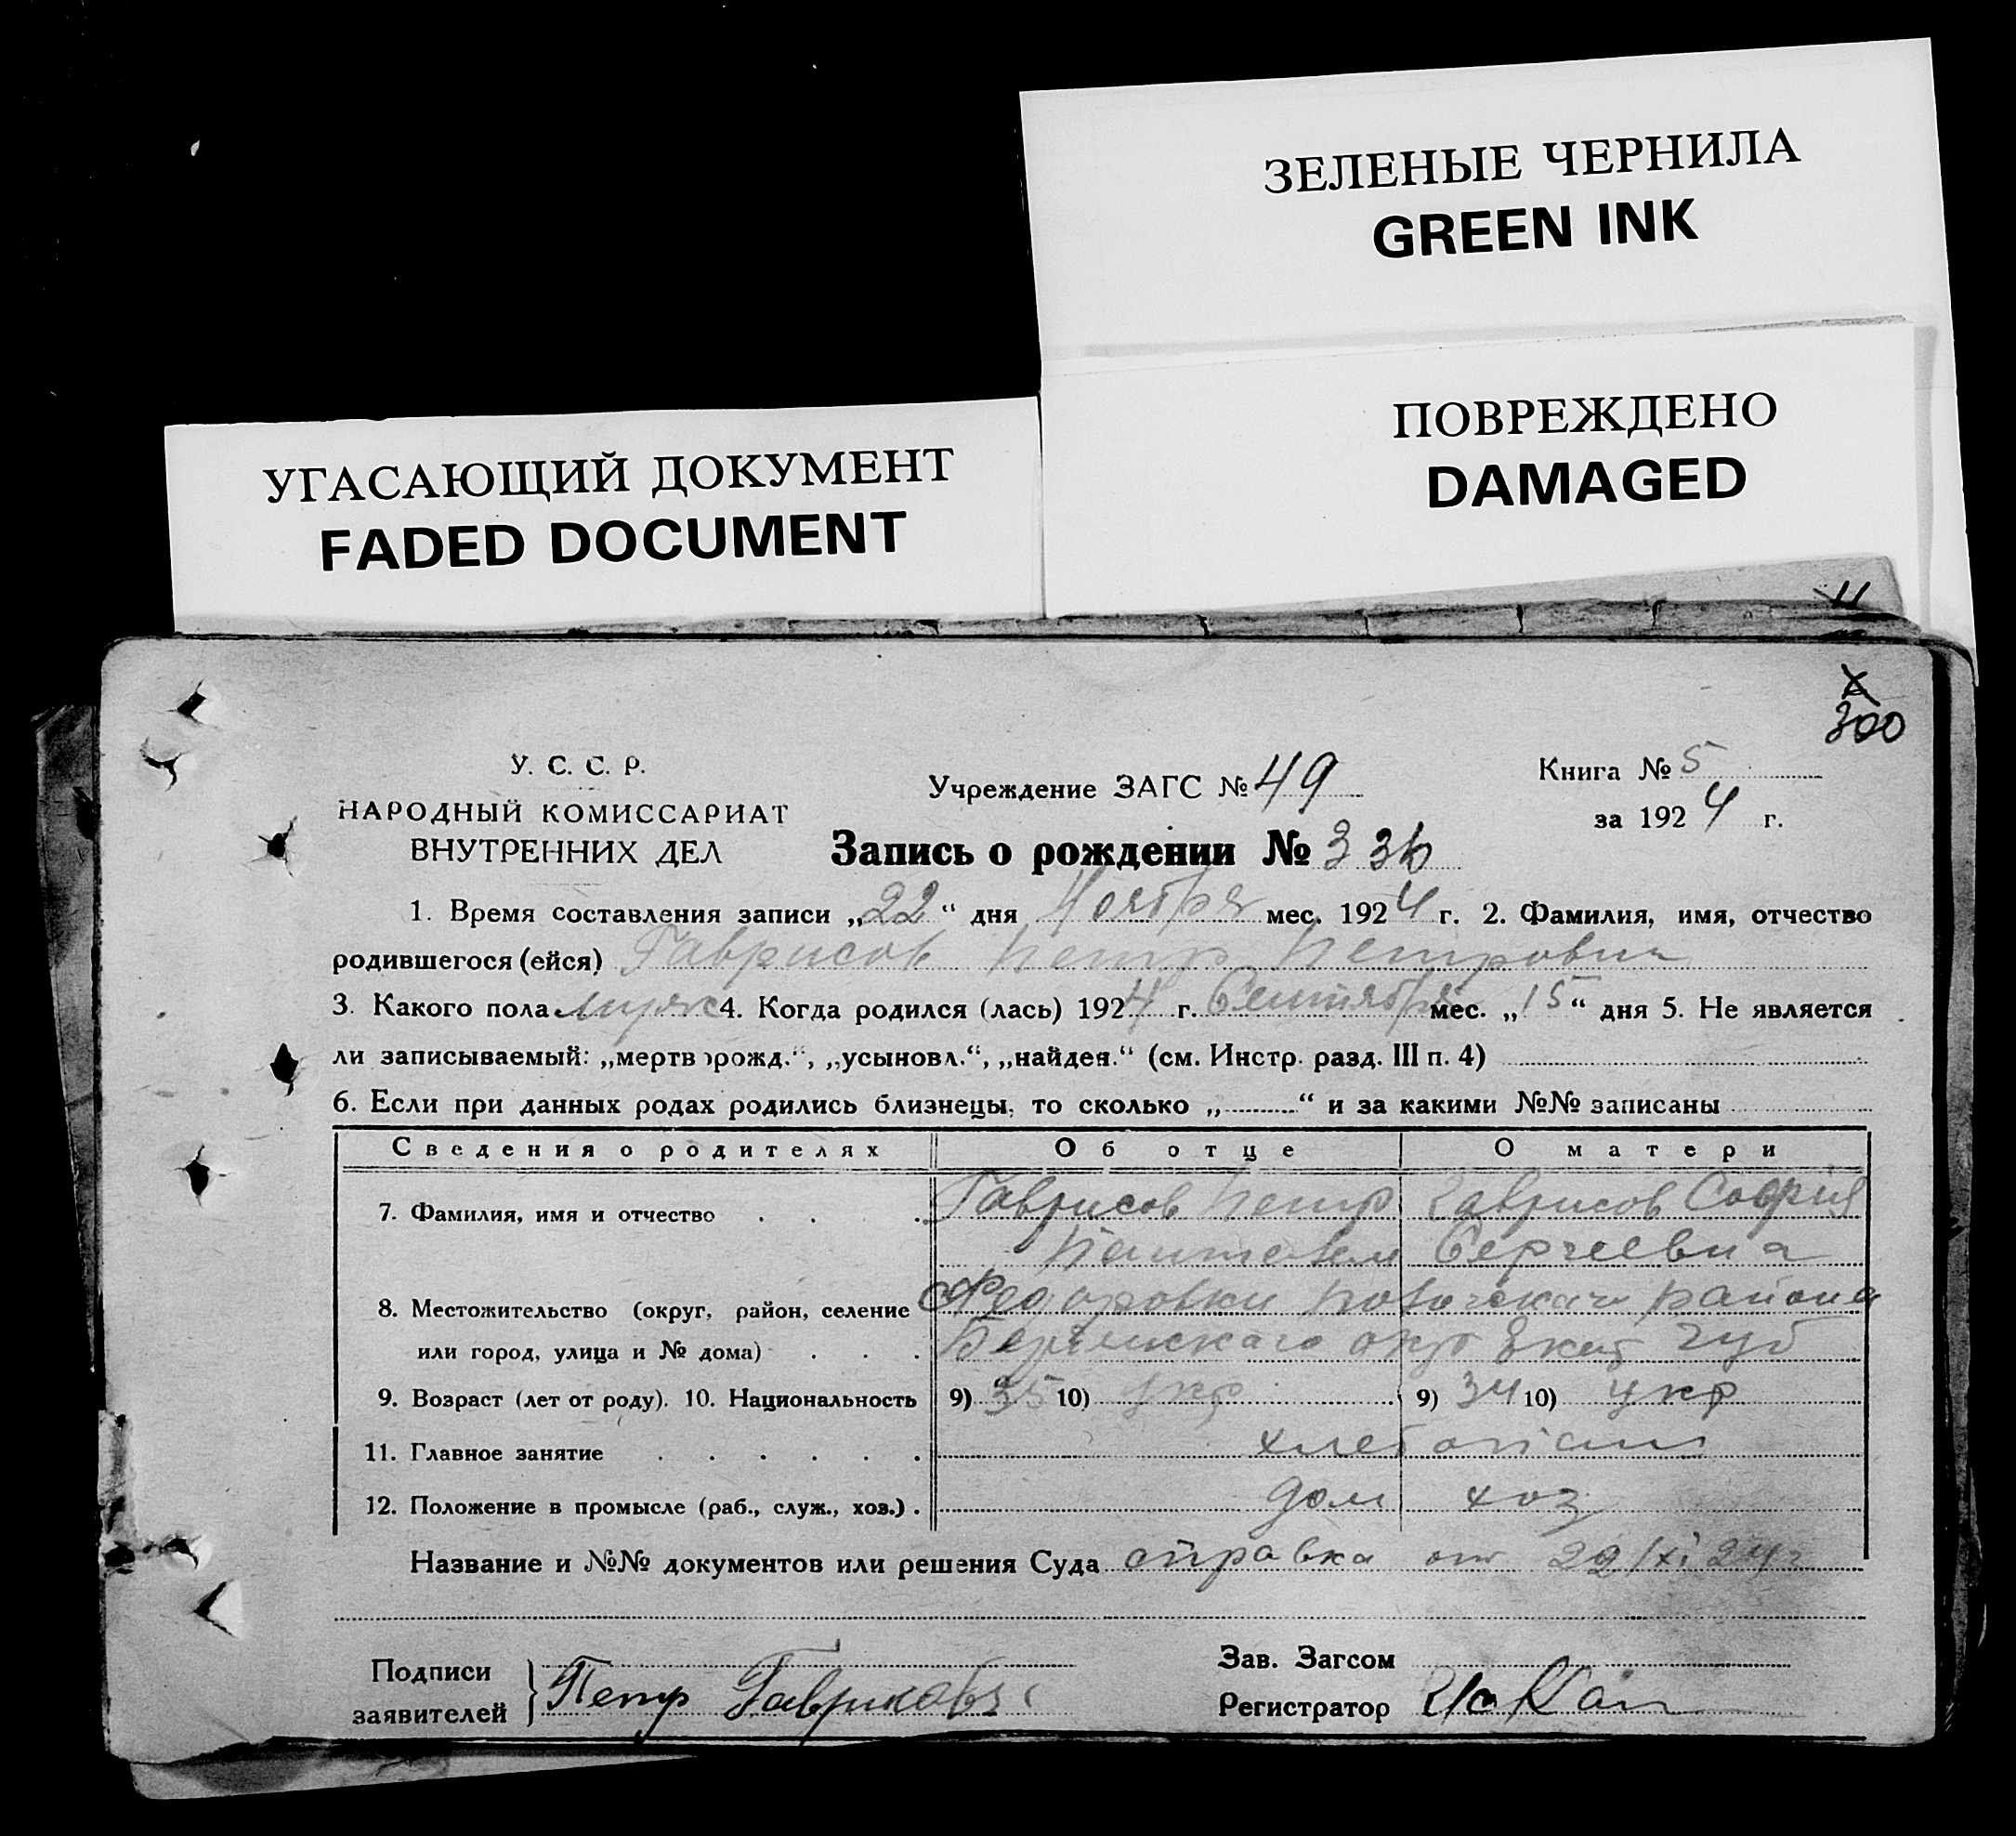 ЗЕЛЕНЫЕ ЧЕРНИЛА
GREEN INK
ПОВРЕЖДЕНО
DAMAGED
УГАСАЮЩИЙ ДОКУМЕНТ
FADED DOCUMENT
11
300
У. С. С. Р.
НАРОДНЫЙ КОМИССАРИАТ
ВНУТРЕННИХ ДЕЛ
Учреждение ЗАГС № 49
Книга № 5
за 1924 г.
Запись о рождении № 336
1. Время составления записи „22“ дня Ноября мес. 1924 г. 2. Фамилия, имя, отчество
родившегося (ейся) Гаврисов Петр Петрович
3. Какого пола мужс 4. Когда родился (лась) 1924 г. Сентября мес. „15“ дня 5. Не является
ли записываемый: „мертворожд.“, „усыновл.“, „найден.“ (см. Инстр. разд. III п. 4)
6. Если при данных родах родились близнецы, то сколько „ “ и за какими №№ записаны
Сведения о родителях Об отце О матери
7. Фамилия, имя и отчество Гаврисов Петр Гаврисов София
Сергеевна
8. Местожительство (округ, район, селение Федоровки района
или город, улица и № дома) окр Екат губ
9. Возраст (лет от роду). 10. Национальность 9) 35 10) укр 9) 34 10) укр
11. Главное занятие
12. Положение в промысле (раб., служ., хоз.) дом хоз
Название и №№ документов или решения Суда справка от 22/XI 24 г
Подписи
заявителей Петр
Зав. Загсом
Регистратор